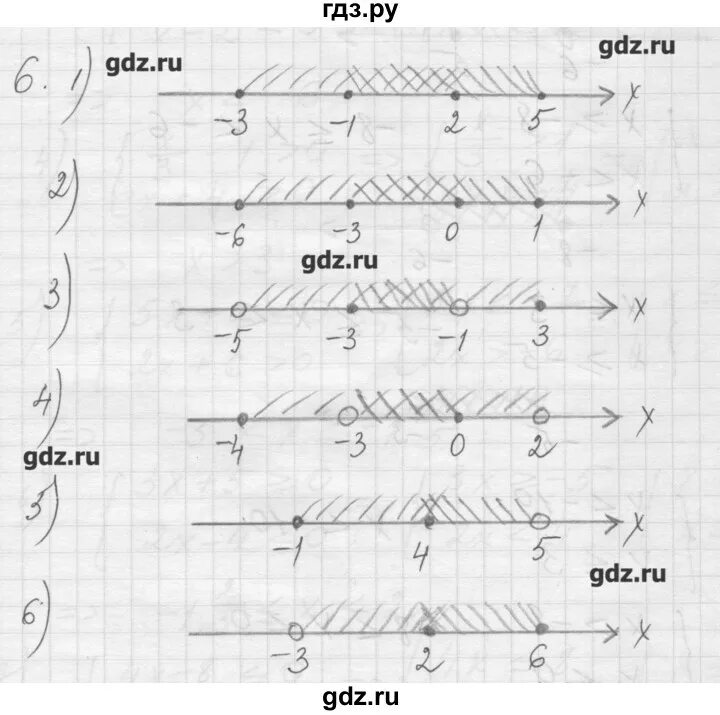 гдз.ру
gdz.ru gdz.ru
6. 1) x
-3 -1 2 5
2) x
-6 -3 0 1
gdz.ru
3) x
-5 -3 -1 3
4) x
-4 -3 0 2
gdz.ru
5) x
-1 4 5
gdz.ru
6) x
-3 2 6
gdz.ru